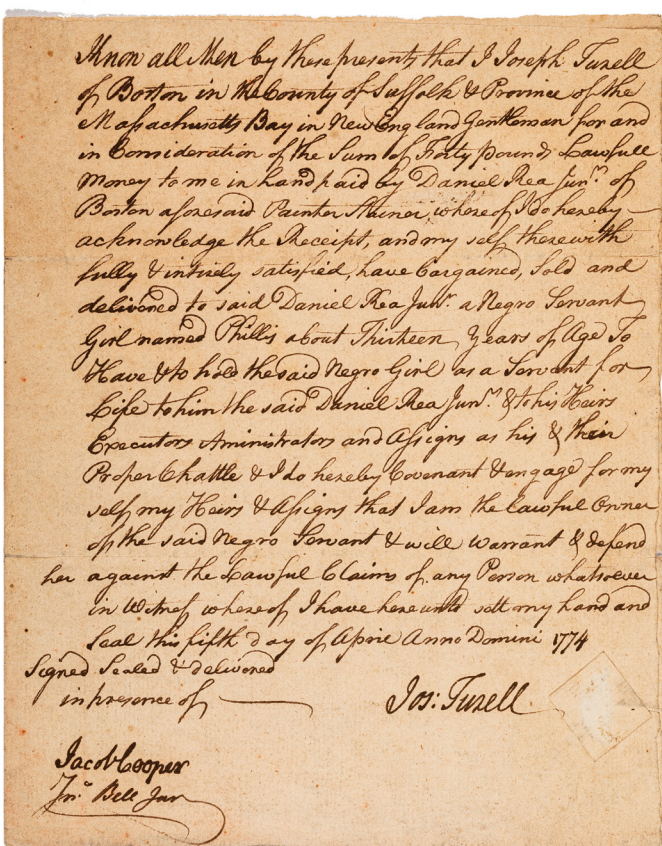 Know all Men by these presents that I Joseph Tuxell
of Boston in the County of Suffolk & Province of the
Massachusetts Bay in New England Gentleman for and
in Consideration of the Sum of Forty pounds Lawfull
Money to me in hand paid by Daniel Rea Junr. of
Boston aforesaid Painter whereof I do hereby
acknowledge the Receipt, and my self therewith
fully & intirely satisfied, have bargained, Sold and
delivered to said Daniel Rea Junr. a Negro Servant
Girl named Phillis about Thirteen Years of Age To
Have & to hold the said Negro Girl as a Servant for
Life to him the said Daniel Rea Junr. & to his Heirs
Executors Aministrators and Assigns as his & their
Proper Chattle & I do hereby Covenant & engage for my
self my Heirs & Assigns that I am the Lawful Owner
of the said Negro Servant & will warrant & defend
her against the Lawful Claims of any Person whatsoever
in Witness whereof I have hereunto sett my hand and
Seal this fifth day of Anno Domini 1774
Signed Sealed & delivered
in presence of
Jos: Tuxell
Jacob Cooper
Jno. Bell Junr